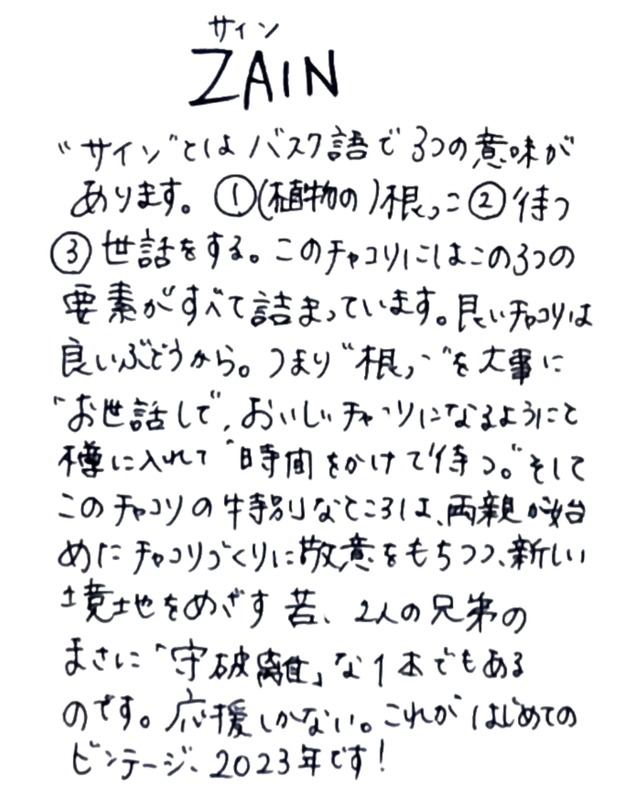 サイン
ZAIN
"サイン"とはバスク語で3つの意味が
あります。①(植物の)根っこ②待つ
③世話をする。このチャコリにはこの3つの
要素がすべて詰まっています。良いチャコリは
良いぶどうから。つまり"根っこ"を大事に
"お世話して"、おいしいチャコリになるようにと
樽に入れて"時間をかけて待つ。"そして
このチャコリの特別なところは、両親が始
めたチャコリづくりに敬意をもちつつ、新しい
境地をめざす若、2人の兄弟の
まさに「守破離」な1本でもある
のです。応援しかない。これがはじめての
ビンテージ、2023年です!